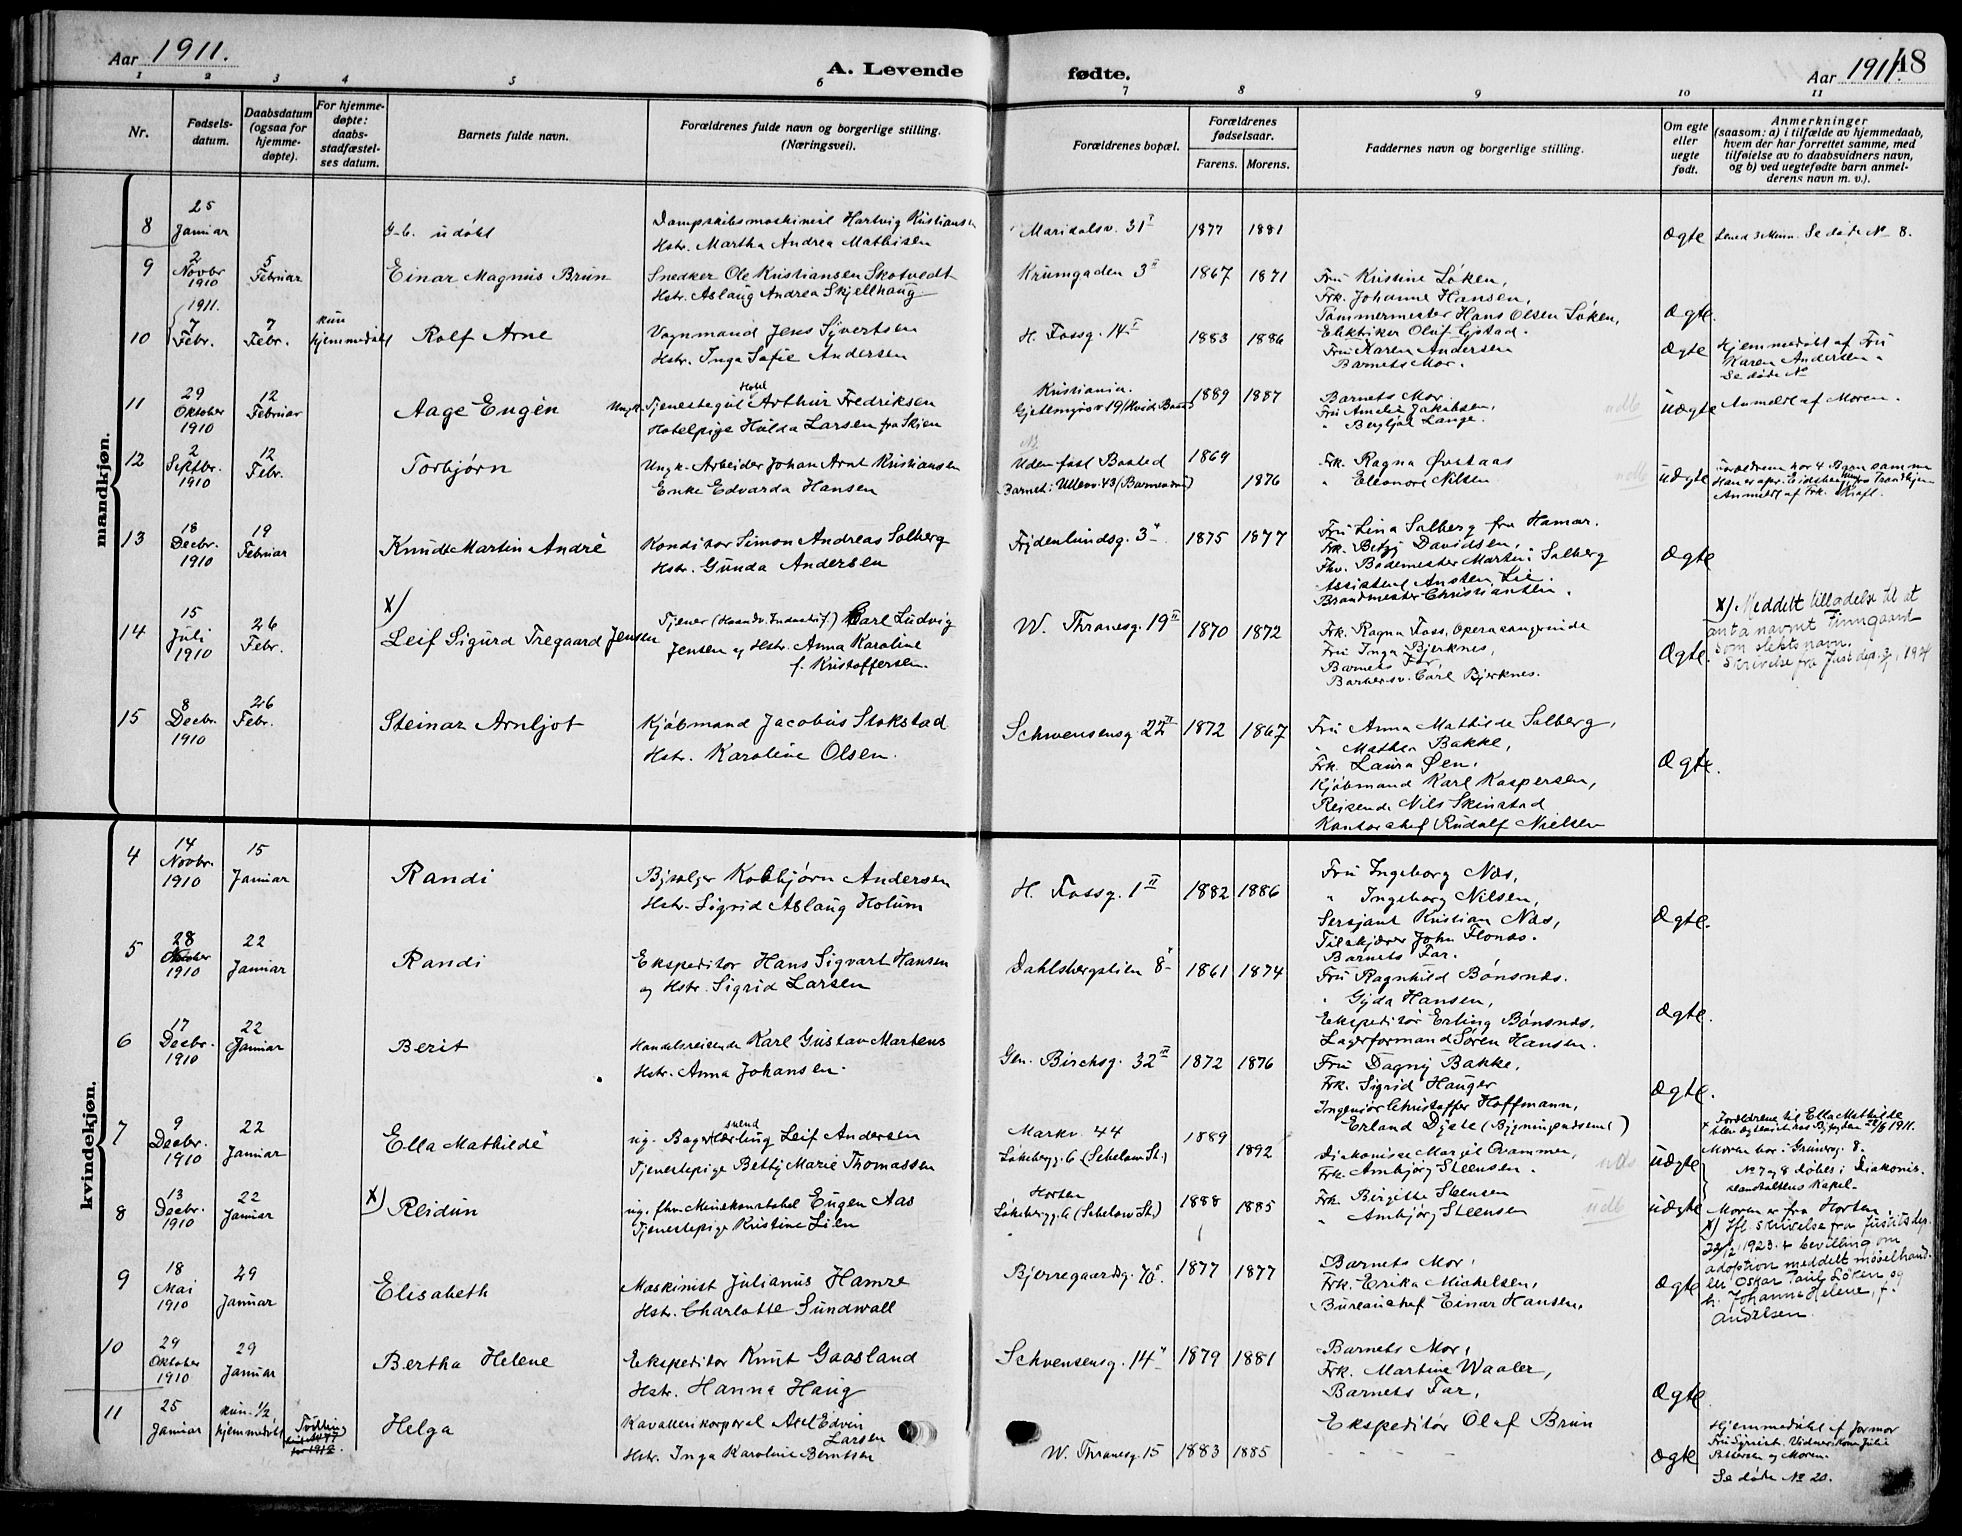 Aar 1911.
A. Levende
fødte.
Aar 1911.
48
1 2 3 4 5 6 7 8 9 10 11
Nr.
Fødsels-
datum.
Daabsdatum
(ogsaa for
hjemme-
døpte).
For hjemme-
døpte:
daabs-
stadfæstel-
ses datum.
Barnets fulde navn.
Forældrenes fulde navn og borgerlige stilling.
(Næringsvei).
Forældrenes bopæl.
Forældrenes
fødselsaar.
Farens. Morens.
Faddernes navn og borgerlige stilling.
Om egte
eller
uegte
født.
Anmerkninger
(saasom: a) i tilfælde av hjemmedaab,
hvem der har forrettet samme, med
tilføielse av to daabsvidners navn,
og b) ved uegtefødte barn anmel-
derens navn m. v.).
mandkjøn.
8
25
Januar
G-b. udøbt
Dampskibsmaskinist Hartvig Kristiansen
Hstr. Martha Andrea Mathisen
Maridalsv. 31 I
1877 1881
Ægte
Leved 3 Minu. Se døde No 8.
9
2
Novbr
1910
5
Februar
Einar Magnus Brun
Snedker Ole Kristiansen Skotvedt
Hstr. Aslaug Andrea Skjellhaug
Krumgaden 3 II
1867 1871
Fru Kristine Løken,
Frk. Johanne Hansen,
Tømmermester Hans Olsen Løken,
Elektriker Oluf Gjstad.
Ægte.
10
1911.
7
Febr.
7
Febr.
kun
hjemmedøbt
Rolf Arne
Vognmand Jens Sjvertsen
Hstr. Inga Sofie Andersen
H. Fossg. 14 I
1883 1886
Fru Karen Andersen
Barnets Mor.
Ægte
Hjemmedøbt af Fru
Karen Andersen.
Se døde No
11
29
Oktober
1910
12
Februar
Aage Eugén
Ungk. Tjenestegut Hotel Arthur Fredriksen
Hotelpige Hulda Larsen fra Skien
Kristiania.
1889 1887
Barnets Mor.
Fru Amelie Jakobsen,
" Bergljot Lange.
udb
uægte
Anmeldt af Moren.
12
2
Septbr.
1910
12
Febr.
Torbjørn
Ungk. Arbeider Johan Arnt Kristiansen
Enke Edvarda Hansen
Uden fast Bosted
1869
1876
Frk. Ragna Øvstaas
" Eleonore Nilsen
udb
uægte
Forældrene har 4 Børn samme
Anmeldt af Frk. Kraft.
13
18
Decbr.
1910
19
Februar
Knudt Martin André
Konditor Simon Andreas Solberg
Hstr. Gunda Andersen
Frydenlundsg. 3 II
1875 1877
Fru Lina Solberg fra Hamar.
Frk. Betzy Davidsen,
Fhv. Bademester Martin Solberg
Assistent Ansten Lie.
Brandmester Christiansen.
Ægte
14
15
Juli
1910
26
Febr.
x)
Leif Sigurd Tregaard Jensen
Tjener (Haandv. Industrif.) Carl Ludvig
Jensen og Hstr. Anna Karoline
f. Kristoffersen.
W. Thranesg. 19 II
1870 1872
Frk. Ragna Foss, Operasangerinde
Fru Inga Bjerknes,
Barnets Far,
Barbersv. Carl Bjerknes.
Ægte.
x) Meddelt tilladelse til at
anta navnet Finngaard
som slektsnavn.
Skrivelse fra Just. dep.
15
8
Decbr.
1910
26
Febr.
Steinar Arnljot
Kjøbmand Jacobus Stokstad
Hstr. Karoline Olsen.
Schwensensg. 22 II
1872 1867
Fru Anna Mathilde Solberg,
" Mathea Bakke,
Frk. Laura Øen,
Kjøbmand Karl Kaspersen,
Reisende Nils Skinstad
Kontorchef Rudolf Nielsen
Ægte.
kvindekjøn.
4
14
Novbr.
1910
15
Januar
Randi
Bysælger Kolbjørn Andersen
Hstr. Sigrid Aslaug Holum
H. Fossg. 1 II
1882 1886
Fru Ingeborg Næs,
" Ingeborg Nilsen,
Sersjant Kristian Næs,
Tilskjærer John Flonæs.
Barnets Far.
Ægte.
5
28
Oktober
1910
22
Januar
Randi
Ekspeditør Hans Sigvart Hansen
og Hstr. Sigrid Larsen
Dahlsbergstien 8
1861 1874
Fru Ragnhild Bønsnæs.
" Gyda Hansen,
Ekspeditør Erling Bønsnæs,
Lagerformand Søren Hansen.
Ægte.
6
17
Decbr.
1910
22
Januar
Berit
Handelsreisende Karl Gustav Martens
Hstr. Anna Johansen.
Gen. Birchsg. 32 III
1872 1876
Fru Dagny Bakke,
Frk. Sigrid Hauger
Ingeniør Christoffer Hoffmann,
Erland Djete
Ægte.
7
9
Decbr.
1910
22
Januar
Ella Mathilde
ug. Bagersvend Leif Andersen
Tjenestepige Betty Marie Thomassen
Markv. 44
Løkebergg. 6 (Sebelow St.)
1889
1892
Diakonisse Margit Qvammen,
Frk. Ambjørg Steensen.
udb
uægte
x Forældrene til Ella Mathilde
1911.
Moren bor i Grünerg. 8.
No 7 og 8 døbes i Diakonis-
seanstaltens Kapel.
8
13
Decbr.
1910
22
Januar
x)
Reidun
ug. fhv. Minekonstabel Eugen Aas
Tjenestepige Kristine Lien
Horten
Løkebergg. 6 (Sebelow St.)
1888 1885
Frk. Birgitte Steensen
" Ambjørg Steensen
udb
uægte
Moren er fra Horten.
x) Ifl. skrivelse fra Justitsdep.
22/12 1923. + bevilling om
adoption meddelt møbelhand-
ler Oskar Pauly Löken, og
h. Johanna Helene, f.
Andresen.
9
18
Mai
1910
29
Januar
Elisabeth
Maskinist Julianus Hamre
Hstr. Charlotte Sundwall
Bjerregaardsg. 70
1877 1877
Barnets Mor,
Frk. Erika Michelsen,
Bureauchef Einar Hansen,
Ægte
10
29
Oktober
1910
29
Januar
Bertha Helene
Ekspeditør Knut Gaasland
Hstr. Hanna Haug
Schvensensg. 14
1879 1881
Barnets Mor,
Frk. Martine Waaler,
Barnets Far,
Ekspeditør Olaf Brun
Ægte.
11
25
Januar
kun. 1/2
hjemmedøbt
Helga
Kavallerikorporal Axel Edvin
Larsen
Hstr. Inga Karoline Berntsen
W. Thranesg. 15
1883 1885
Ægte
Hjemmedøbt af Jormor
Pettersen og Moren.
Se døde No 20.